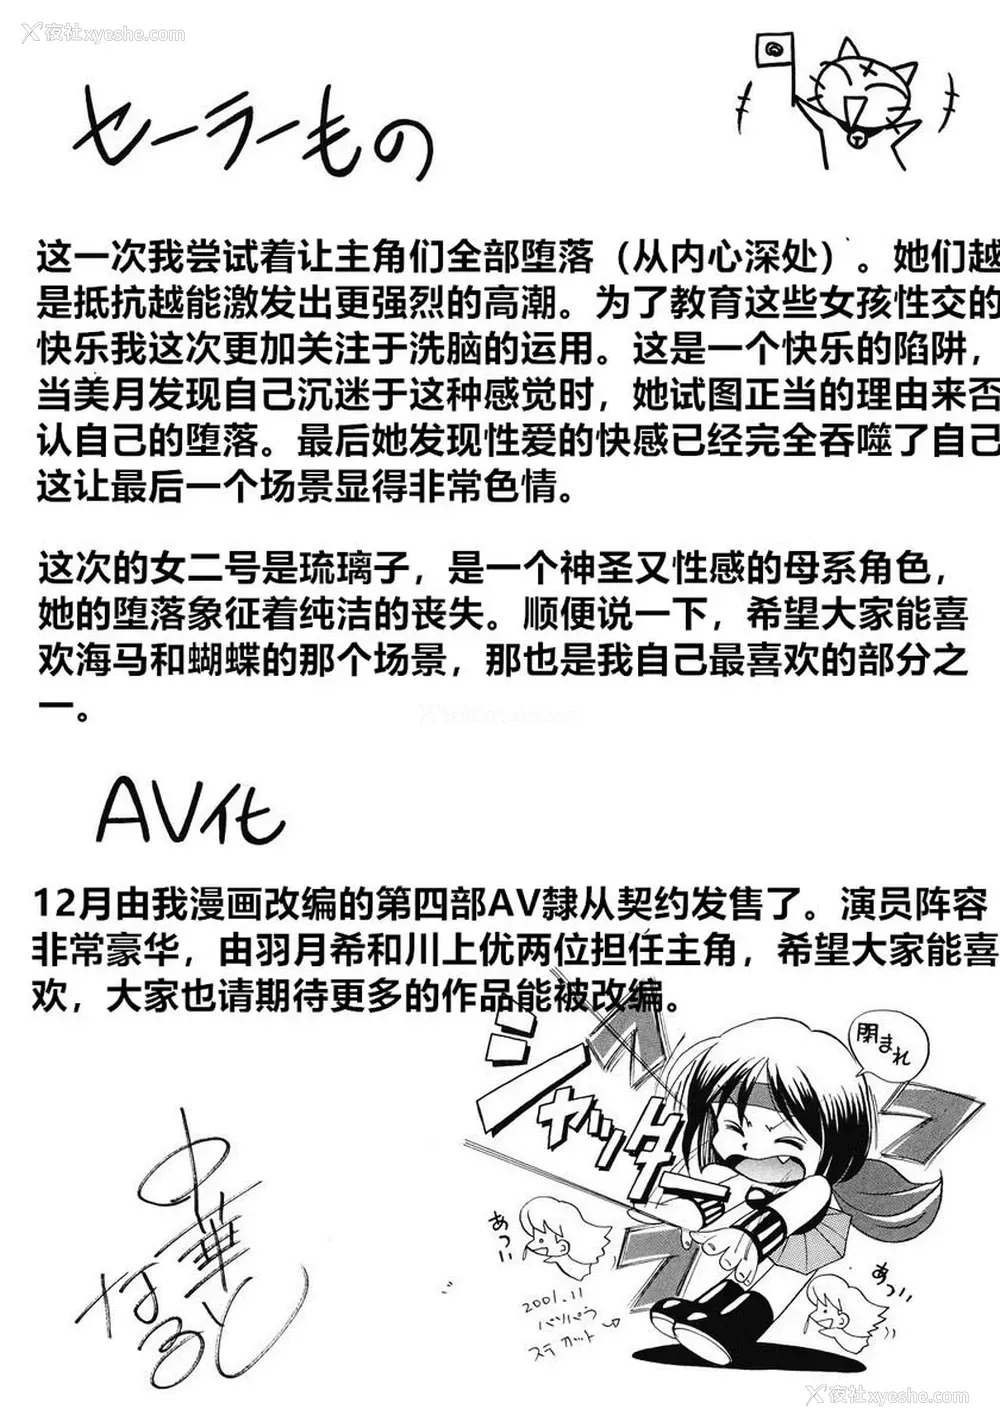 夜社xyeshe.com
セーラーもの
这一次我尝试着让主角们全部堕落（从内心深处）。她们越
是抵抗越能激发出更强烈的高潮。为了教育这些女孩性交的
快乐我这次更加关注于洗脑的运用。这是一个快乐的陷阱，
当美月发现自己沉迷于这种感觉时，她试图正当的理由来否
认自己的堕落。最后她发现性爱的快感已经完全吞噬了自己
这让最后一个场景显得非常色情。
这次的女二号是琉璃子，是一个神圣又性感的母系角色，
她的堕落象征着纯洁的丧失。顺便说一下，希望大家能喜
欢海马和蝴蝶的那个场景，那也是我自己最喜欢的部分之
一。
夜社xyeshe.com
AV化
12月由我漫画改编的第四部AV隸从契约发售了。演员阵容
非常豪华，由羽月希和川上优两位担任主角，希望大家能喜
欢，大家也请期待更多的作品能被改编。
シャッター
閉まれ
あつい
あつい
2001.11
パソパラ
ステカット
中華なると
夜社xyeshe.com